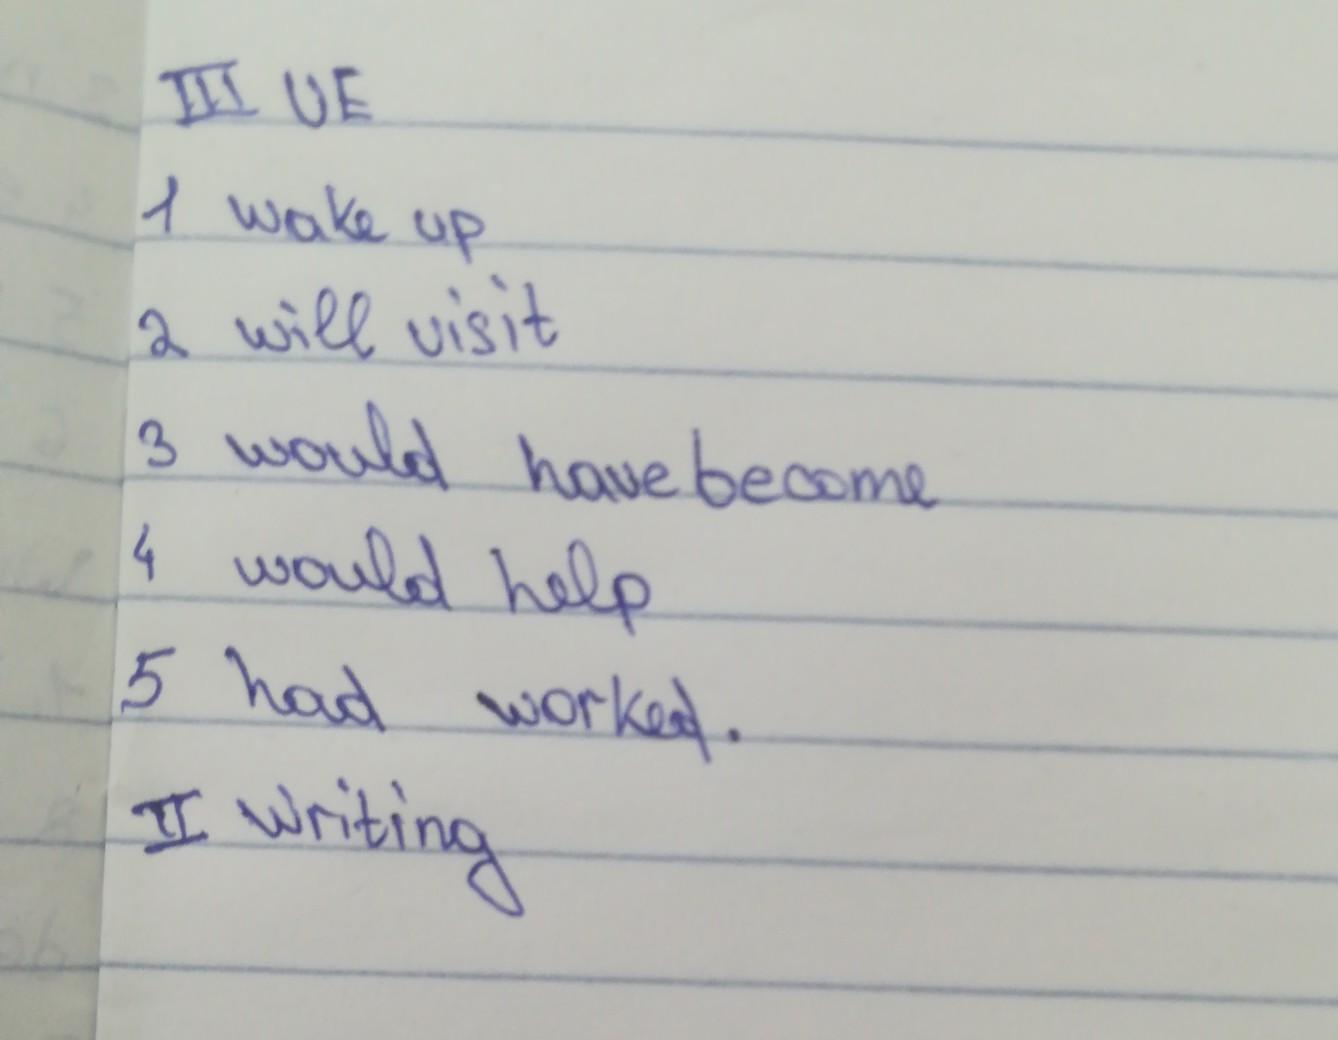 III UE
1 wake up
2 will visit
3 would have become
4 would help
5 had worked.
II Writing